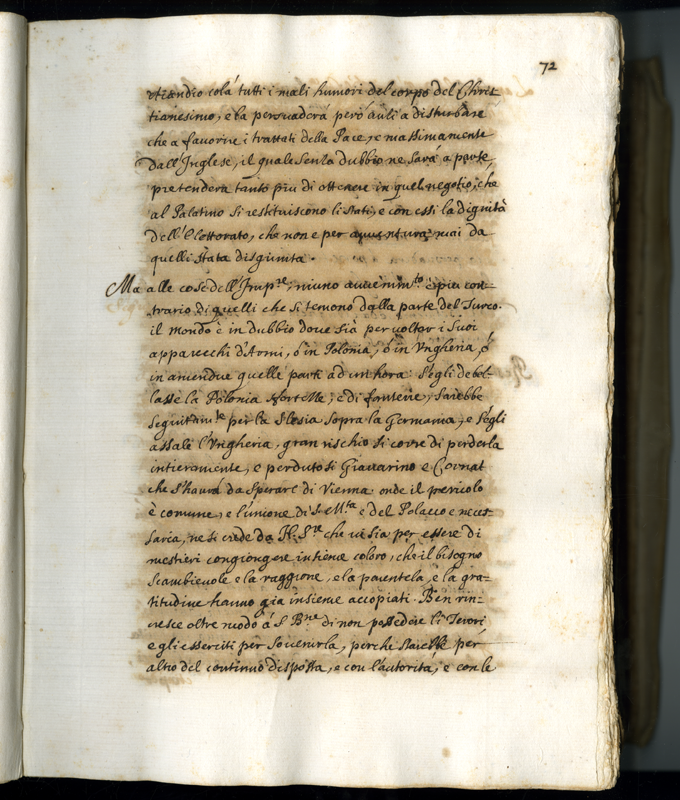 72
etiandio colà tutti i mali humori del corpo del Chris
tianesimo, e la persuaderà però anli a disturbare
che a favorire i trattati della Pace, e massimamente
dall'Inglese, il quale senza dubbio ne sarà a parte,
pretenderà tanto più di ottenere in quel negotio, che
al Palatino si restituiscono li stati, e con essi la dignità
dell'Elettorato, che non e per avventura mai da
quelli stata disgiunta.
Ma alle cose dell'Imp.re, niuno avvenim.to è più con=
trario di quelli che si temono dalla parte del Turco.
il mondo è in dubbio dove sia per voltar i suoi
apparecchi d'Armi, ò in Polonia, ò in Ungheria, ò
in amendue quelle parti ad un hora. S'egli debel
lasse la Polonia, e di fanterie, sarebbe
seguitam.te per la Slesia sopra la Germania, e s'egli
assale l'Ungheria, gran rischio si corre di perderla
intieramente, e perdutosi Giavarino e
che s'havrà da sperare di Vienna onde il pericolo
è comune, e l'unione di S. M.tà e del Polacco e neces
saria, ne si crede da N. S.re che vi sia per essere di
mestieri congiongere insieme coloro, che il bisogno
scambievole e la raggione, e la parentela, e la gra=
titudine hanno già insieme accopiati. Ben rin=
cresce oltre modo à S. B.ne di non possedere li Tesori
e gli esserciti per sovenirla, perche starebbe per
altro del continuo disposta, e con l'autorità, e con le